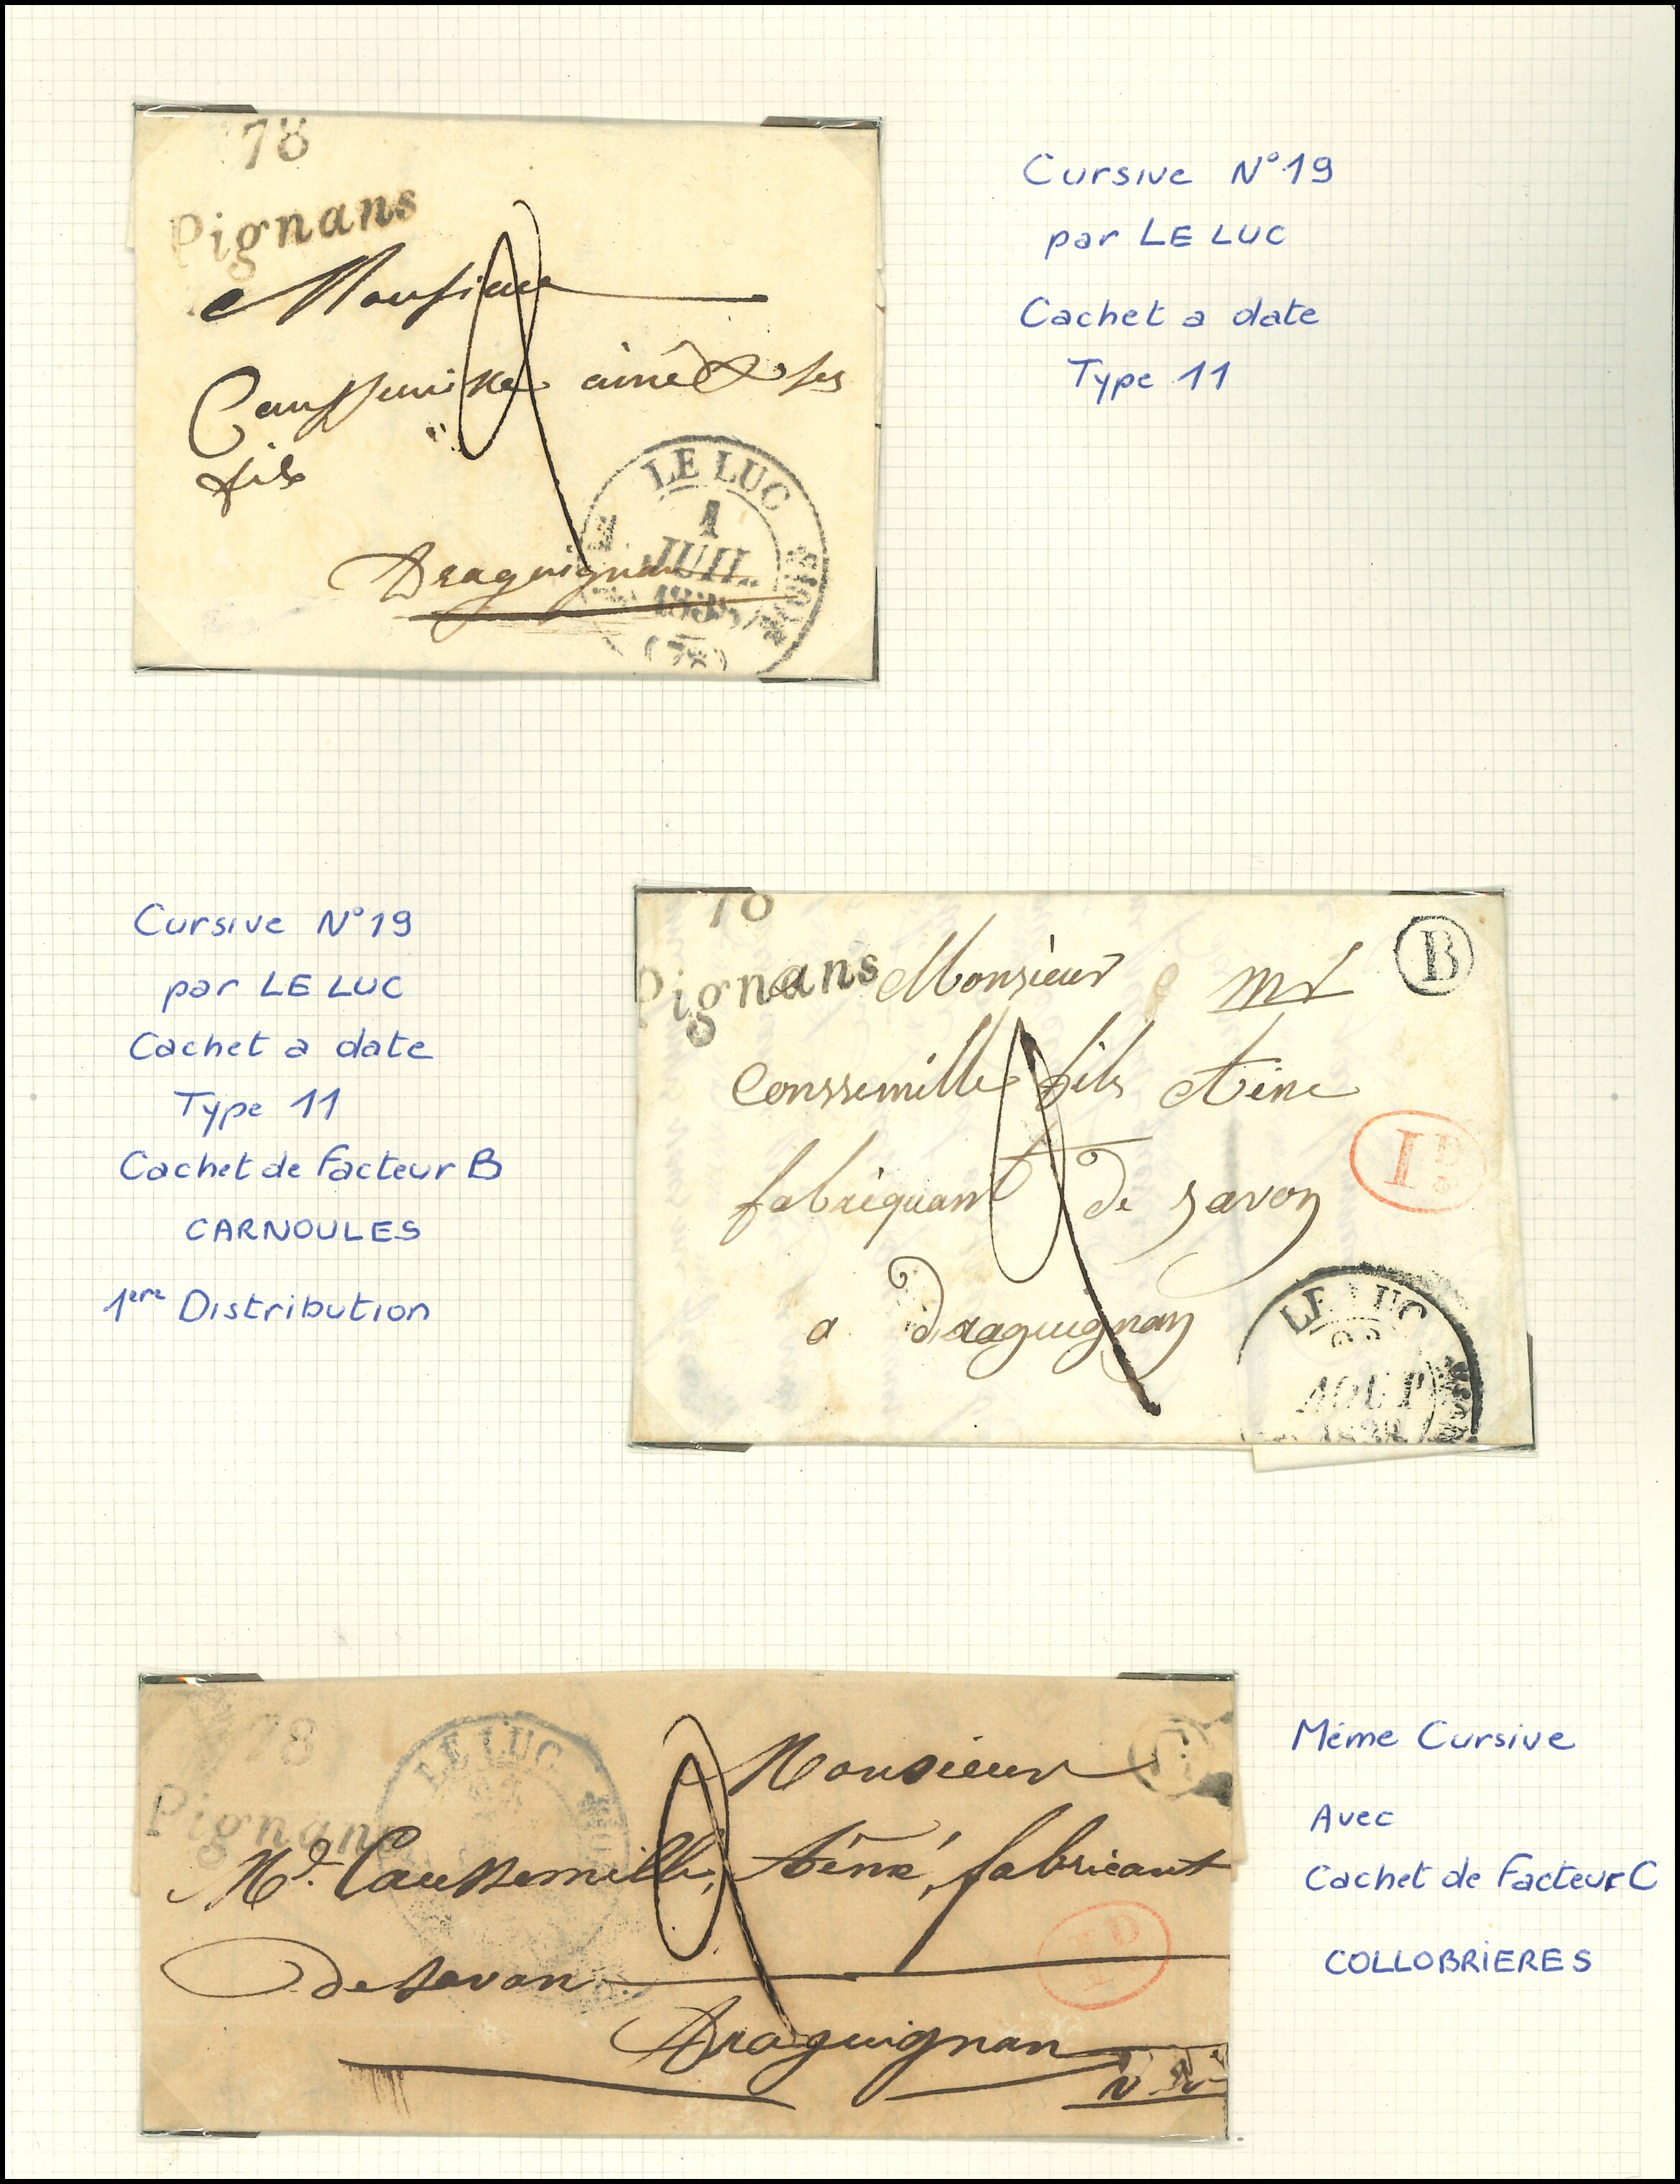 78
Pignans
Monsieur
Caussemille ainé & ses
fils
Draguignan
LE LUC
1
JUIL.
(78)
Cursive N° 19
par LE LUC
Cachet a date
Type 11
Cursive N° 19
par LE LUC
Cachet a date
Type 11
Cachet de Facteur B
CARNOULES
1ere Distribution
78
Pignans
B
Monsieur
Coussemille fils Aine
fabriquant de savon
a draguignan
LE LUC
AOUT
78
Pignans
LE LUC
C
Monsieur
Md. Caussemille, Aîné, fabricant
de Savon
Draguignan
Méme Cursive
Avec
Cachet de Facteur C
COLLOBRIERES